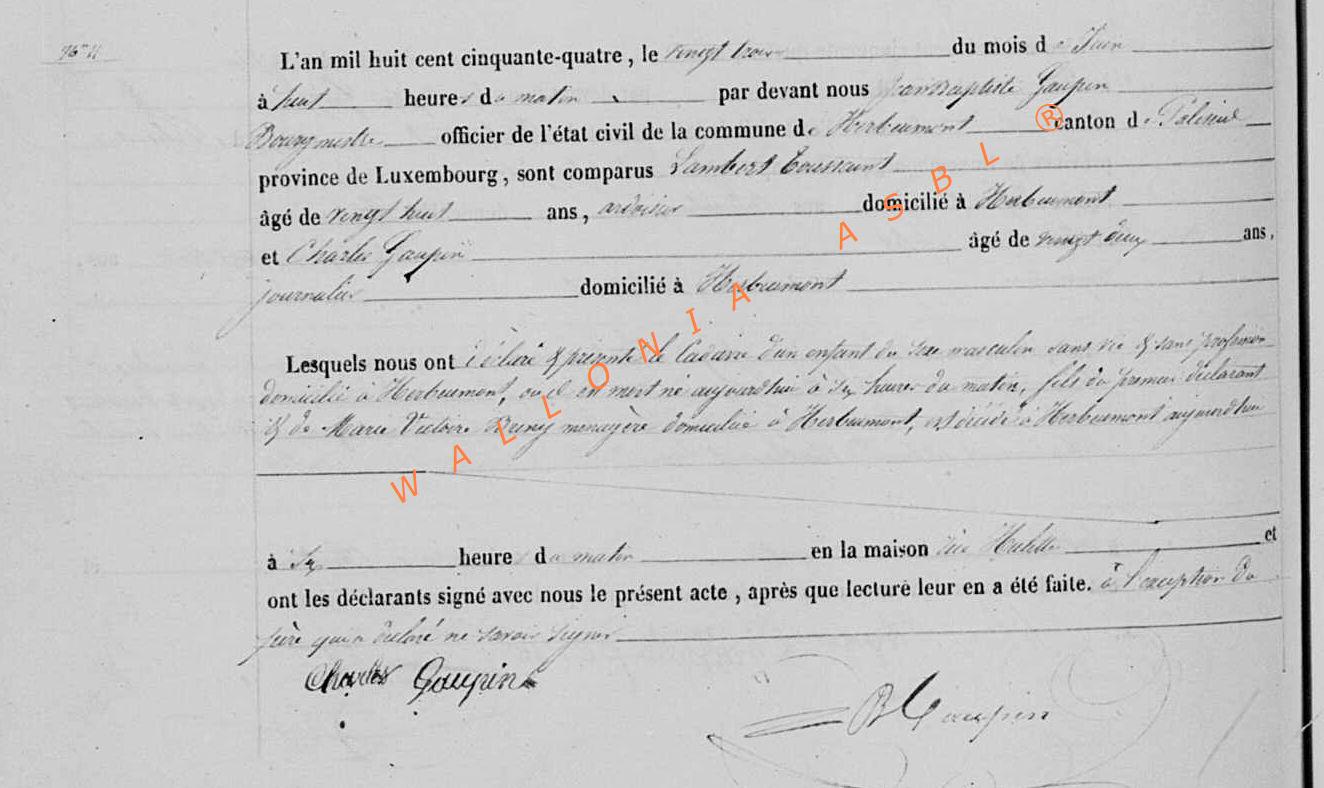 N° 11
L'an mil huit cent cinquante-quatre, le vingt trois du mois de Juin
à huit heures du matin par devant nous Jean Baptiste Gaupin
Bourgmestre officier de l'état civil de la commune de Herbeumont canton de Paliseul
province de Luxembourg, sont comparus Lambert Toussaint
âgé de vingt huit ans, ardoisier domicilié à Herbeumont
et Charles Gaupin âgé de vingt deux ans,
journalier domicilié à Herbeumont
Lesquels nous ont déclaré & présenté le cadavre d'un enfant du sexe masculin sans vie & sans profession
domicilié à Herbeumont, où il est mort né aujourd'hui à six heures du matin, fils du premier déclarant
& de Marie Victoire ménagère domiciliée à Herbeumont, est décédé à Herbeumont aujourd'hui
à six heure du matin en la maison rue et
ont les déclarants signé avec nous le présent acte, après que lecture leur en a été faite. à l'exception du
père qui a déclaré ne savoir signer
Charles Gaupin
JB Gaupin
WALLONIA ASBL ®